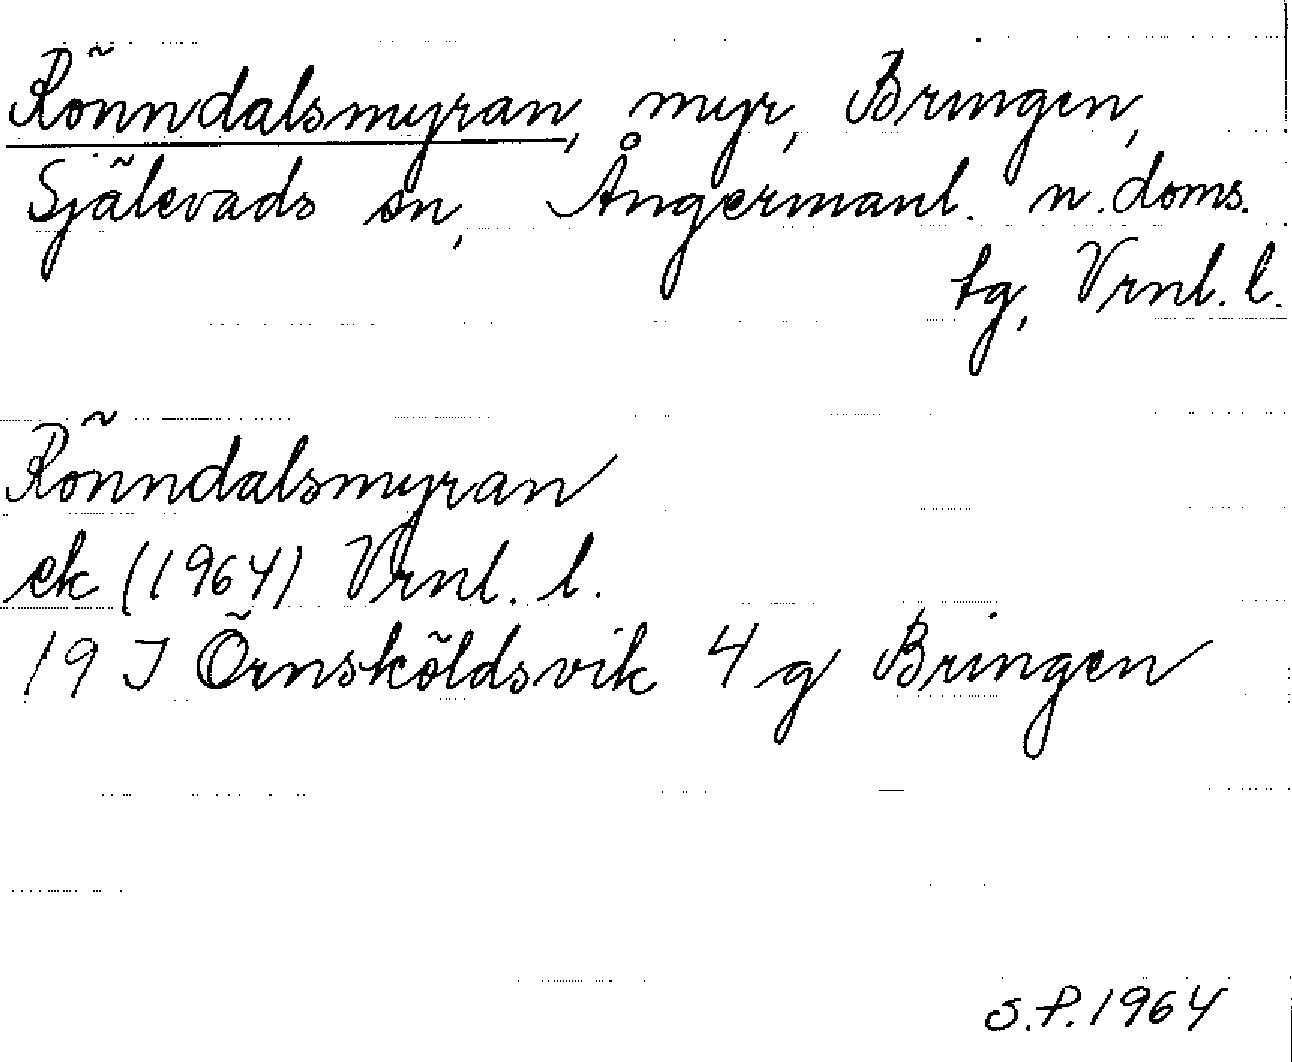 Rönndalsmyran, myr, Bringen,
Själevads sn, Ångermanl. n. doms.
tg, Vrnl. l.
Rönndalsmyran
ek (1964) Vrnl. l.
19 J Örnsköldsvik 4 g Bringen
S.P. 1964